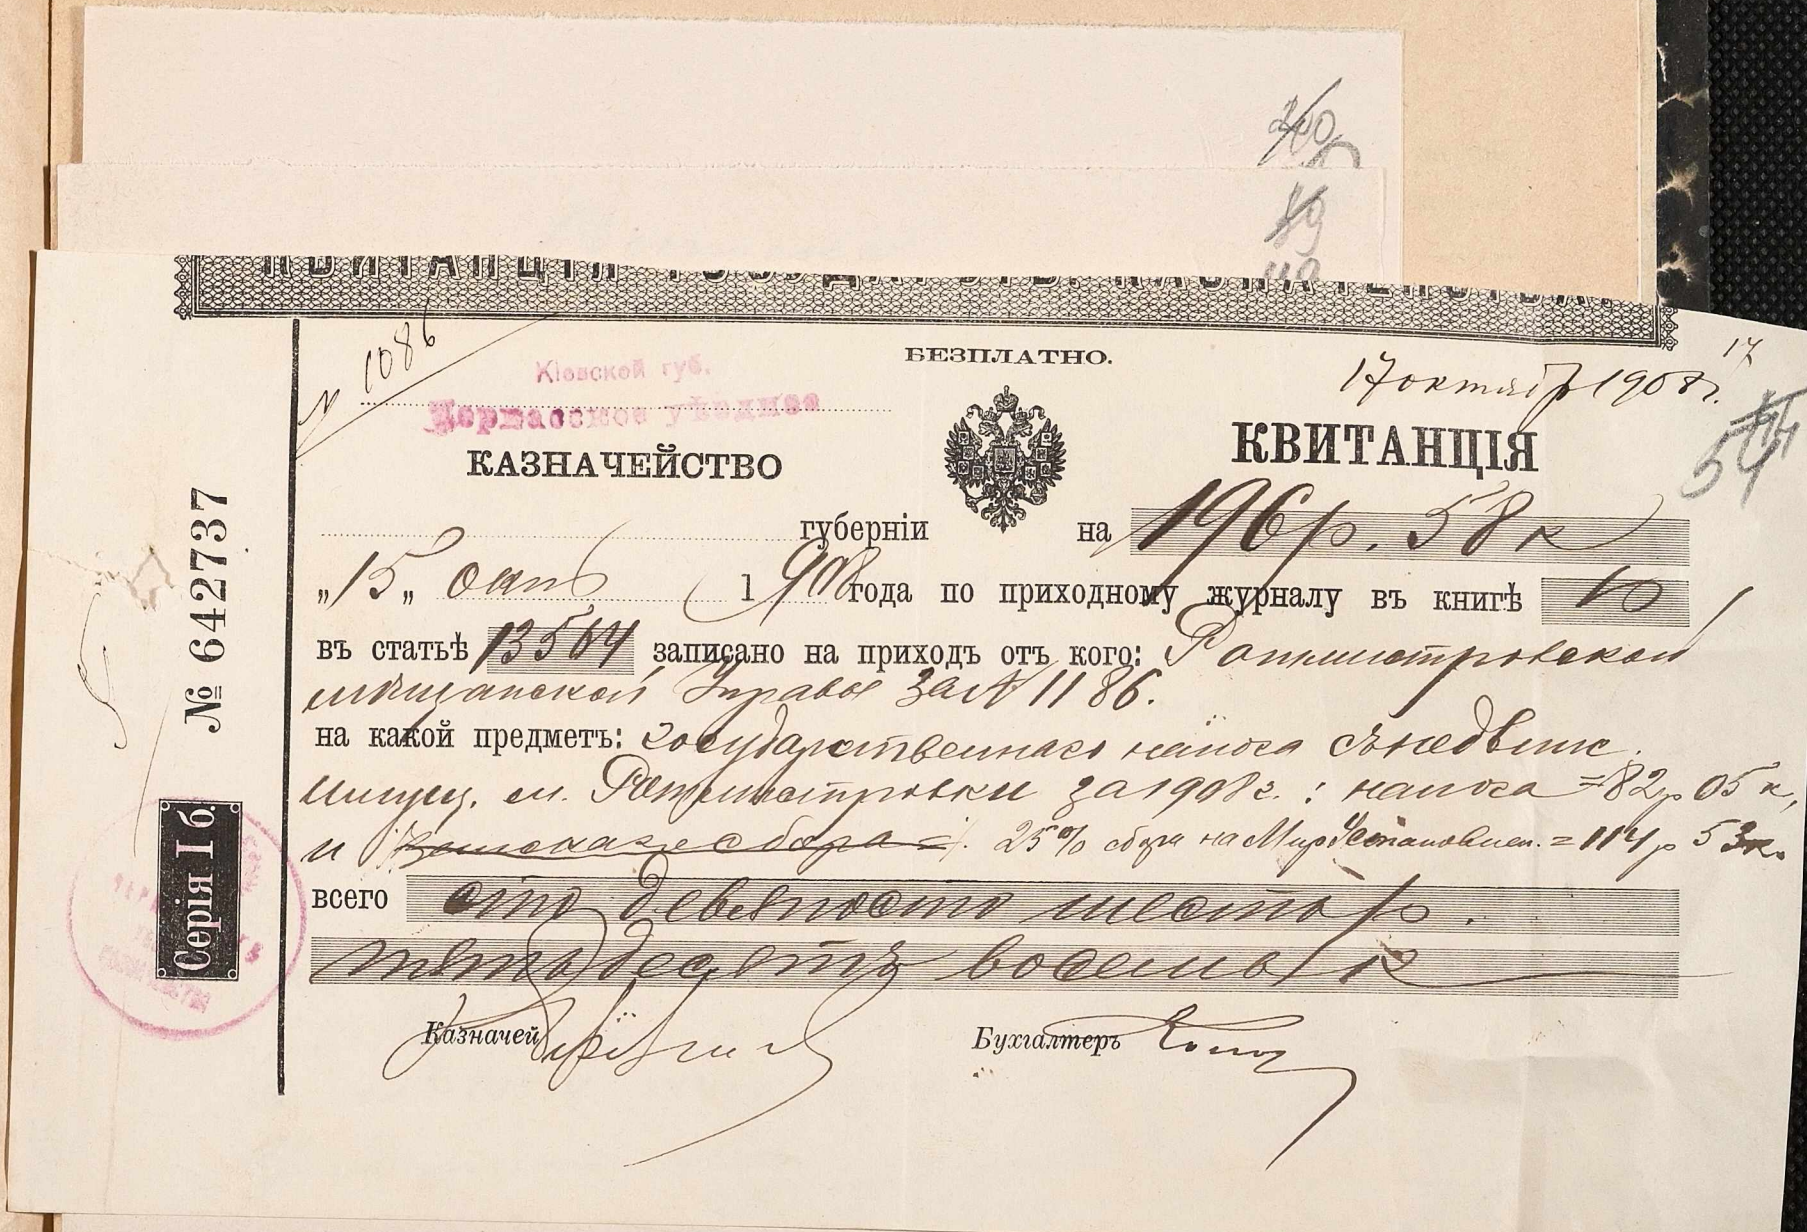 КВИТАНЦІЯ ГОСУДАРСТВ. КАЗНАЧЕЙСТВА.
БЕЗПЛАТНО.
№ 1086
17 октября 1908 г.
17
54
Кіевской губ.
Черкасское уѣздное
КАЗНАЧЕЙСТВО
КВИТАНЦІЯ
губерніи
на 196 р. 58 к
„15„ окт 1908 года по приходному журналу въ книгѣ 10
въ статьѣ 13564 записано на приходъ отъ кого: Ротмистровской
мѣщанской Управы за № 1186.
на какой предметъ: государственнаго налога съ недвиж.
имущ. м. Ротмистровки за 1908 г.: налога = 82 р 05 к,
и 25% сбора на Мир Установлен. = 114 р 53 к.
всего сто девяносто шесть р.
пятьдесятъ восемь к
Казначей
Бухгалтеръ
№ 642737
Серія I б.